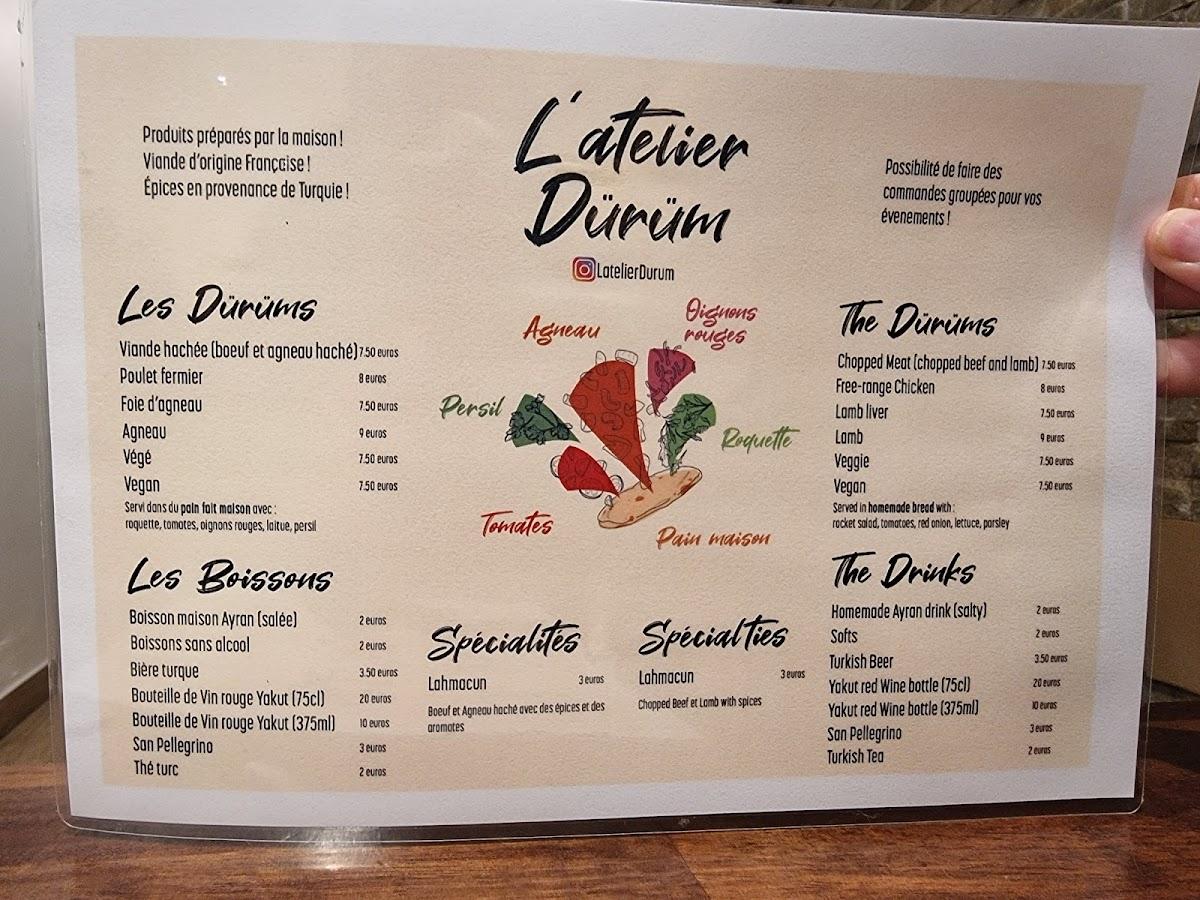 Produits préparés par la maison !
Viande d'origine Française !
Épices en provenance de Turquie !
L'atelier
Dürüm
LatelierDurum
Possibilité de faire des
commandes groupées pour vos
évenements !
Les Dürüms
Viande hachée (boeuf et agneau haché) 7.50 euros
Poulet fermier 8 euros
Foie d'agneau 7.50 euros
Agneau 9 euros
Végé 7.50 euros
Vegan 7.50 euros
Servi dans du pain fait maison avec :
roquette, tomates, oignons rouges, laitue, persil
Agneau
Oignons
rouges
Persil
Roquette
Tomates
Pain maison
The Dürüms
Chopped Meat (chopped beef and lamb) 7.50 euros
Free-range Chicken 8 euros
Lamb liver 7.50 euros
Lamb 9 euros
Veggie 7.50 euros
Vegan 7.50 euros
Served in homemade bread with :
rocket salad, tomatoes, red onion, lettuce, parsley
Les Boissons
Boisson maison Ayran (salée) 2 euros
Boissons sans alcool 2 euros
Bière turque 3.50 euros
Bouteille de Vin rouge Yakut (75cl) 20 euros
Bouteille de Vin rouge Yakut (375ml) 10 euros
San Pellegrino 3 euros
Thé turc 2 euros
Spécialités
Lahmacun 3 euros
Boeuf et Agneau haché avec des épices et des
aromates
Spécialties
Lahmacun 3 euros
Chopped Beef et Lamb with spices
The Drinks
Homemade Ayran drink (salty) 2 euros
Softs 2 euros
Turkish Beer 3.50 euros
Yakut red Wine bottle (75cl) 20 euros
Yakut red Wine bottle (375ml) 10 euros
San Pellegrino 3 euros
Turkish Tea 2 euros